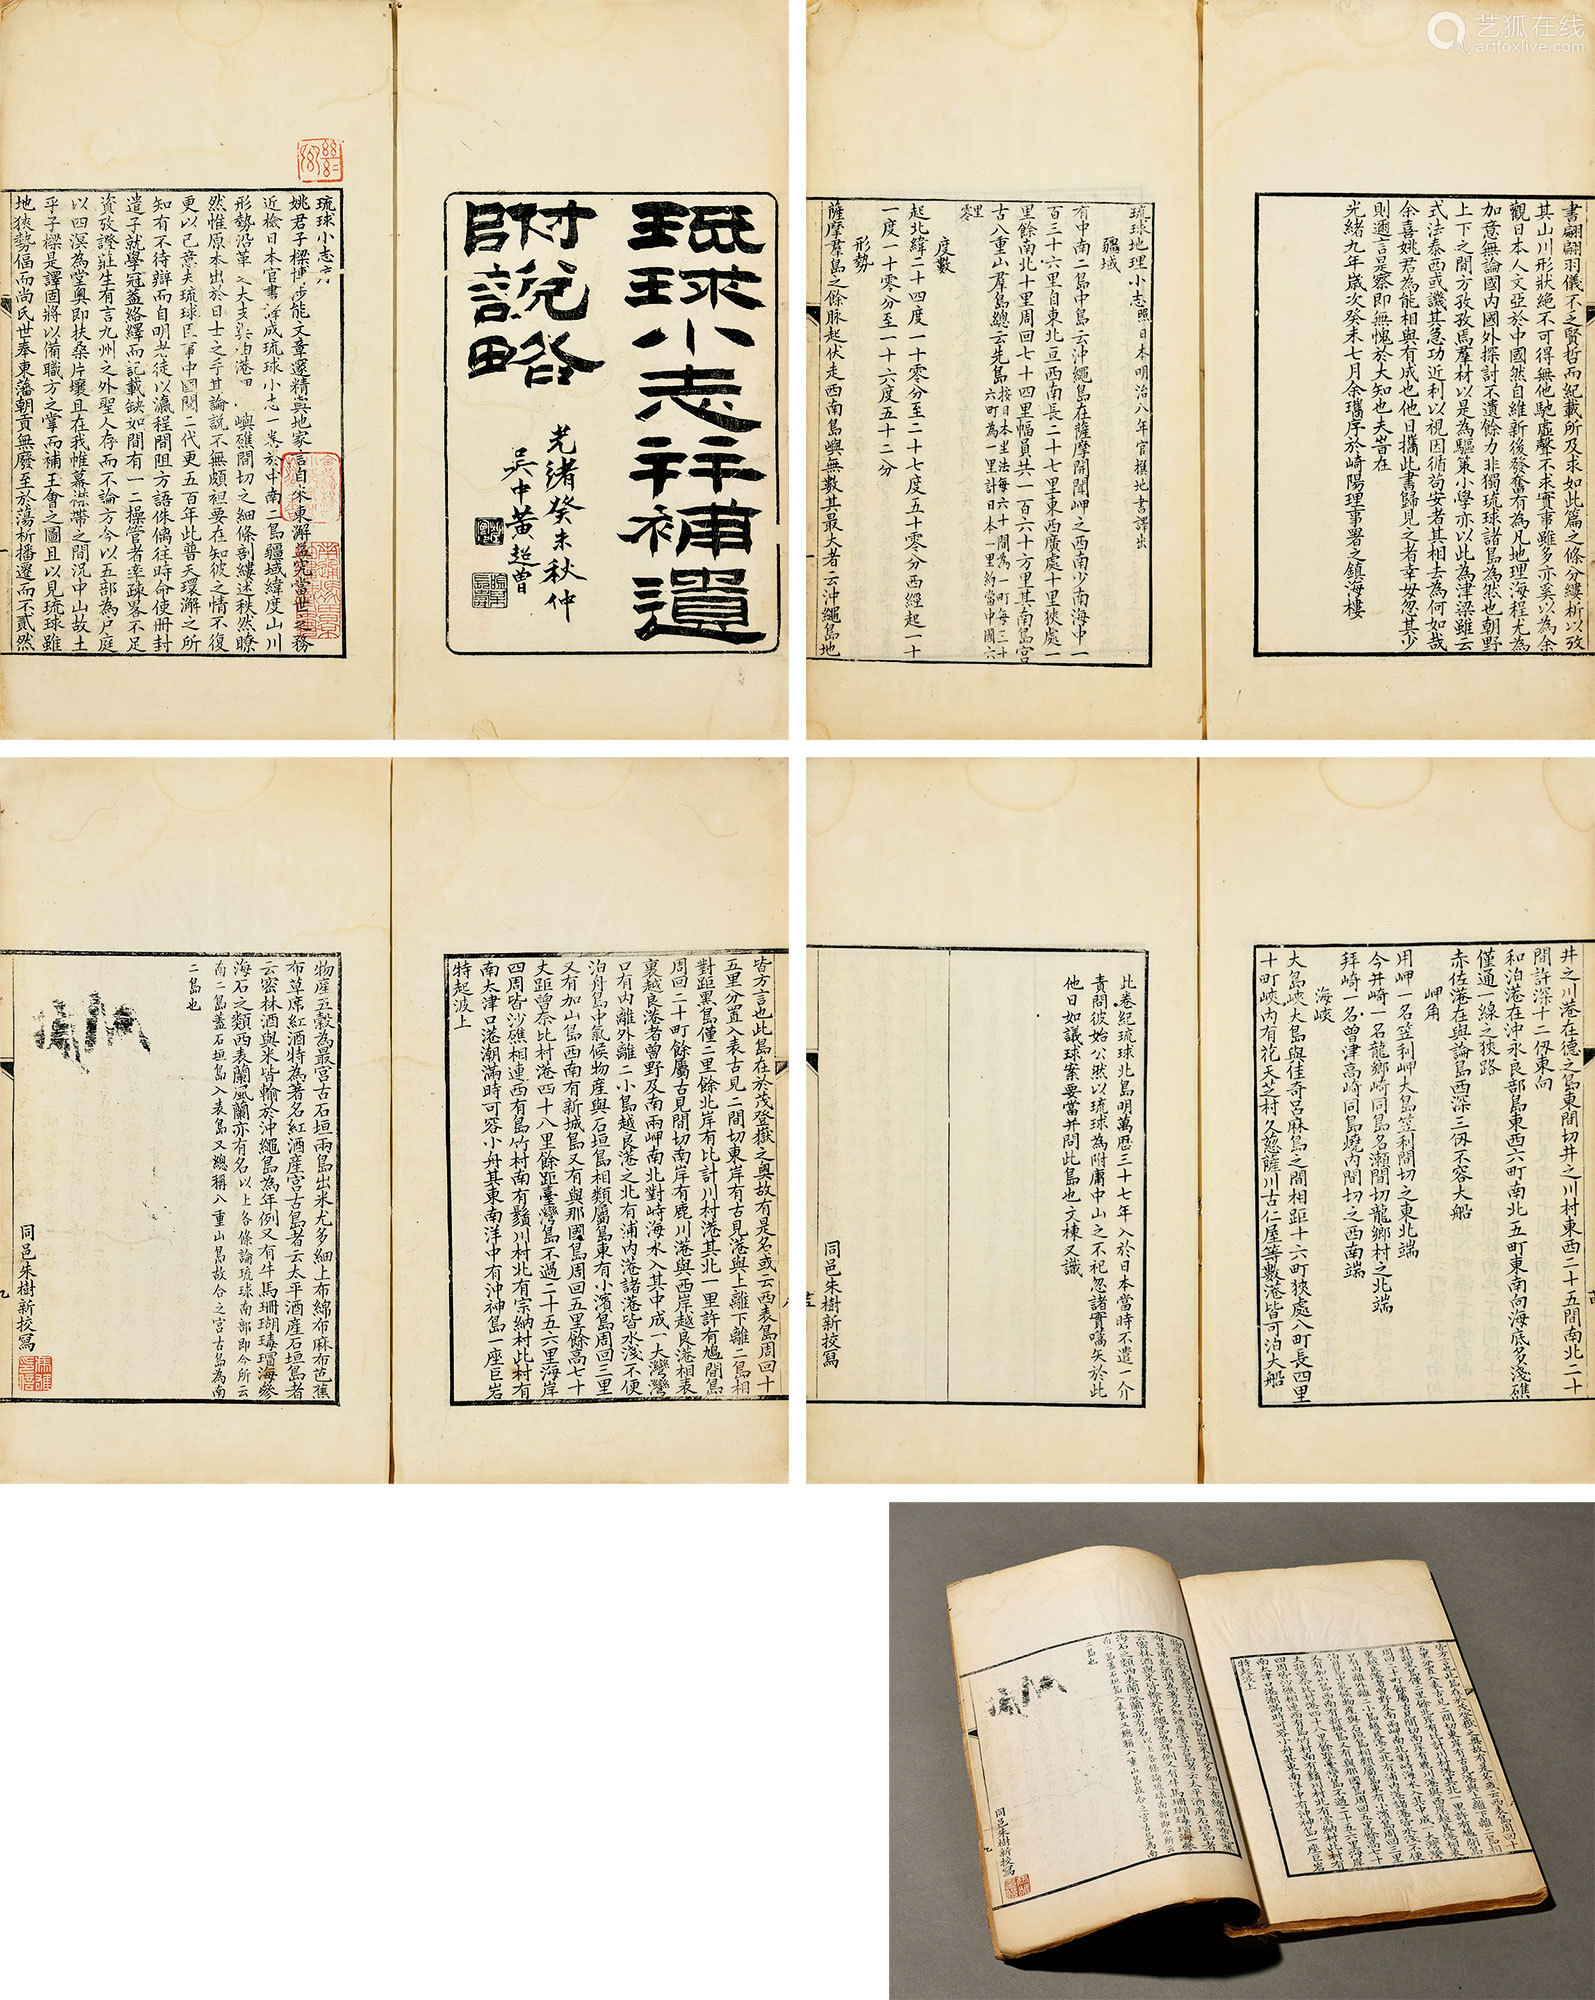 艺狐在线
artfoxlive.com
琉球小志并補遺
附說略
光緒癸未秋仲
吳中黃超曾
琉球小志
姚君子樑博學能文章邃精輿地家言自來東瀛益究當世之務
近檢日本官書譯成琉球小志一卷於中南二島疆域緯度山川
形勢沿革之大支與泊港
嶼礁間切之細條剖縷述秩然瞭
然惟原本出於日士之手其論說不無頗袒要在知彼之情不復
更以己意夫琉球臣事中國閱二代更五百年此普天環瀛之所
知有不待辯而自明者徒以瀛程間阻方語侏㒧往時命使冊封
遣子就學冠蓋絡繹而記載缺如間有一二操管者率疎畧不足
資攷證莊生有言九州之外聖人存而不論方今以五部為戶庭
以四溟為堂奧即扶桑片壤且在我帷幕襟帶之間況中山故土
乎子樑是譯固將以備職方之掌而補王會之圖且以見琉球雖
地狹勢偪而尚氏世奉東藩朝貢無廢至於蕩析播遷而不貳然
書翩翩羽儀不乏賢哲而紀載所及求如此篇之條分縷析以攷
其山川形狀絕不可得無他馳虛聲不求實事雖多亦奚以為余
觀日本人文亞於中國然自維新後發奮有為凡地理海程尤為
加意無論國內國外探討不遺餘力非獨琉球諸島為然也朝野
上下之間方孜孜焉羣材以是為驅策小學亦以此為津梁雖云
式法泰西或譏其急功近利以視因循苟安者其相去為何如哉
余喜姚君為能相與有成也他日攜此書歸見之者幸毋忽其少
則邇言是察即無愧於大知也夫昔在
光緒九年歲次癸未七月余瓗序於崎陽理事署之鎮海樓
琉球地理小志照日本明治八年官撰地書譯出
疆域
有中南二島中島云沖繩島在薩摩開聞岬之西南少南海中一
百三十六里自東北亘西南長二十七里東西廣處十里狹處一
里餘南北十里周回七十四里幅員共一百六十方里其南島宮
古八重山羣島總云先島按日本里法每六十間為一町每三十
六町為一里計日本一里約當中國六
里零
度數
起北緯二十四度一十零分至二十七度五十零分西經起一十
一度一十零分至一十六度五十二分
形勢
薩摩羣島之餘脉起伏走西南島嶼無數其最大者云沖繩島地
皆方言也此島在於茂登嶽之奥故有是名或云西表島周回十
五里分置入表古見二間切東岸有古見港與上離下離二島相
對距黑島僅二里餘北岸有比計川村港其北一里許有鳩間島
周回二十町餘屬古見間切南岸有鹿川港與西岸越良港相表
裏越良港者曽野及南雨岬南北對峙海水入其中成一大灣灣
口有內離外離二小島越良港之北有浦內港諸港皆水淺不便
泊舟島中氣候物產與石垣島相類屬島東有小濱島周回三里
又有加山島西南有新城島又有與那國島周回五里餘高七十
丈距曾奈比村港四十八里餘距臺灣島不過二十五六里海岸
四周皆沙礁相連西有島竹村南有鬚川村北有宗納村此村有
南大津口港潮滿時可容小舟其東南洋中有沖神島一座巨岩
特起波上
物產五穀為最宮古石垣兩島出米尤多細上布綿布麻布芭蕉
布草席紅酒特為著名紅酒產宮古島者云太平酒產石垣島者
云密林酒與米皆輸於沖繩島為年例又有牛馬珊瑚瑇瑁海參
海石之類西表蘭風蘭亦有名以上各條論琉球南部即今所云
南二島蓋石垣島入表島又總稱八重山島故合之宮古島為南
二島也
同邑朱樹新校寫
九
井之川港在德之島東間切井之川村東西二十五間南北二十
間許深十二仭東向
和泊港在沖永良部島東西六町南北五町東南向海底多淺礁
僅通一線之狹路
赤佐港在與論島西深三仭不容大船
岬角
用岬一名笠利岬大島笠利間切之東北端
今井崎一名龍鄉崎同島名瀨間切龍鄉村之北端
拜崎一名曾津高崎同島燒內間切之西南端
海峽
大島峽大島與佳奇呂麻島之間相距十六町狹處八町長四里
十町峽內有花天芝村久慈薩川古仁屋等數港皆可泊大船
此卷紀琉球北島明萬曆三十七年入於日本當時不遣一介
責問彼始公然以琉球為附庸中山之不祀忽諸實嚆矢於此
他日如議球案要當并問此島也文棟又識
同邑朱樹新校寫